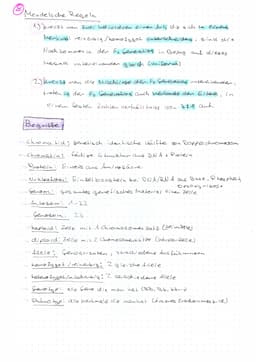 Mendelsche Regeln
1.) kreuzt man zwei Individuen einer Art die sich in einem
Merkmal reinerbig/homozygot unterscheiden, sind die
Nachkommen in der F1 Generation in Bezug auf dieses
Merkmal untereinander gleich (uniform)
2.) kreuzt man die Mischlinge der F1 Generation untereinander,
in der F2 Generation auch Merkmale der Eltern, in
einem festen Zahlenverhältnis von auf.
Begriffe:
- Chromatid: genetisch identische Hälfte von Doppelchromosom
- Chromatin: fädige Struktur aus DNA + Protein
- Protein: Eiweiß aus Aminosäure
- Nukleotid: Einzelbaustein der DNA/RNA aus Base, Phosphat,
- Genom: gesamtes genetisches Material einer Zelle
- Autosom: 1-22
- Gonosom: 23
- haploid: Zelle mit 1 Chromosomensatz
- diploid: Zelle mit 2 Chromosomensätze
- Allele: Genvarianten, verschiedene Ausführungen
- homozygot/reinerbig: 2 gleiche Allele
- heterozygot/mischerbig: 2 verschiedene Allele
- Genotyp: die Gene die man hat
- Phänotyp: die Merkmale die man hat